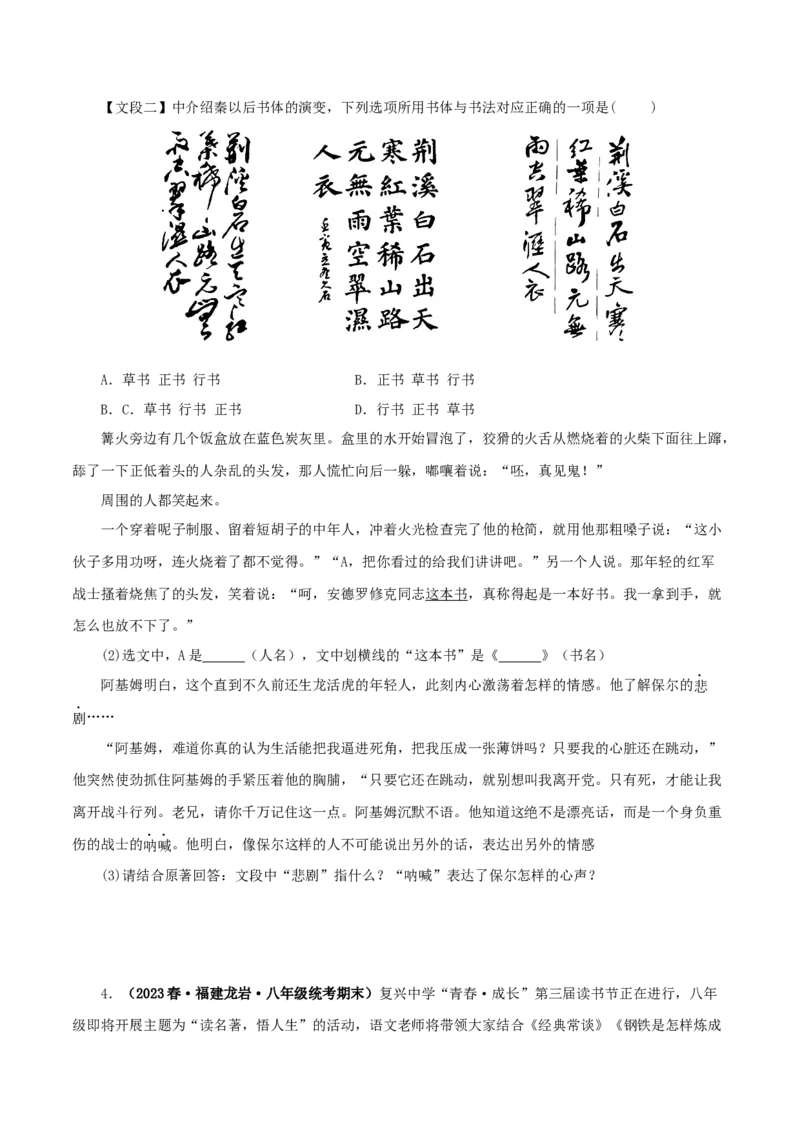 【文段二】中介绍秦以后书体的演变，下列选项所用书体与书法对应正确的一项是(　　)
荆溪白石出天寒红
葉稀山路元無
雨空翠濕人衣
荆溪白石出天
寒紅葉稀山路
元無雨空翠濕
人衣
荆溪白石出天寒
红葉稀山路元無
雨空翠溼人衣
A．草书 正书 行书　　B．正书 草书 行书
B．C．草书 行书 正书　　D．行书 正书 草书
篝火旁边有几个饭盒放在蓝色炭灰里。盒里的水开始冒泡了，狡猾的火舌从燃烧着的火柴下面往上蹿，
舔了一下正低着头的人杂乱的头发，那人慌忙向后一躲，嘟嚷着说：“呸，真见鬼！”
周围的人都笑起来。
一个穿着呢子制服、留着短胡子的中年人，冲着火光检查完了他的枪简，就用他那粗嗓子说：“这小
伙子多用功呀，连火烧着了都不觉得。”“A，把你看过的给我们讲讲吧。”另一个人说。那年轻的红军
战士搔着烧焦了的头发，笑着说：“呵，安德罗修克同志这本书，真称得起是一本好书。我一拿到手，就
怎么也放不下了。”
(2)选文中，A是______（人名），文中划横线的“这本书”是《______》（书名）
阿基姆明白，这个直到不久前还生龙活虎的年轻人，此刻内心激荡着怎样的情感。他了解保尔的悲
剧……
“阿基姆，难道你真的认为生活能把我逼进死角，把我压成一张薄饼吗？只要我的心脏还在跳动，”
他突然使劲抓住阿基姆的手紧压着他的胸脯，“只要它还在跳动，就别想叫我离开党。只有死，才能让我
离开战斗行列。老兄，请你千万记住这一点。阿基姆沉默不语。他知道这绝不是漂亮话，而是一个身负重
伤的战士的呐喊。他明白，像保尔这样的人不可能说出另外的话，表达出另外的情感
(3)请结合原著回答：文段中“悲剧”指什么？“呐喊”表达了保尔怎样的心声？
4．（2023春·福建龙岩·八年级统考期末）复兴中学“青春·成长”第三届读书节正在进行，八年
级即将开展主题为“读名著，悟人生”的活动，语文老师将带领大家结合《经典常谈》《钢铁是怎样炼成